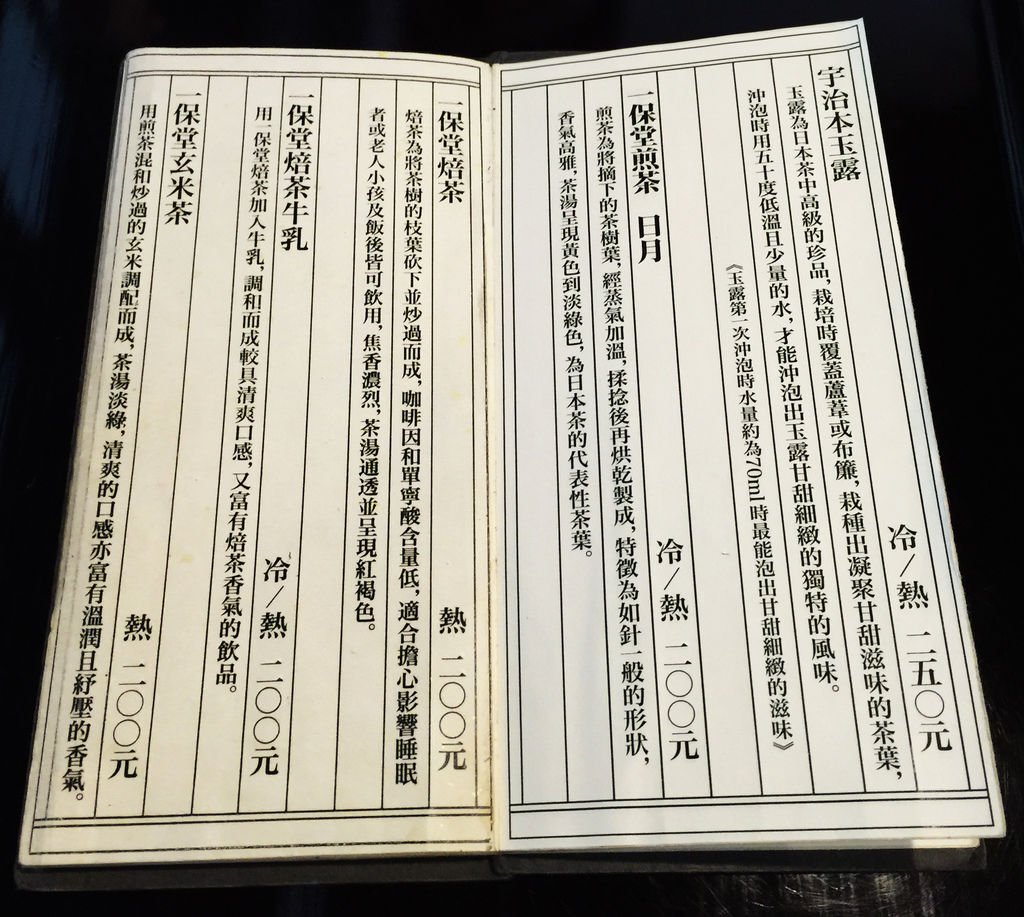 宇治本玉露
冷／熱 二五〇元
玉露為日本茶中高級的珍品，栽培時覆蓋蘆葦或布簾，栽種出凝聚甘甜滋味的茶葉，
沖泡時用五十度低溫且少量的水，才能沖泡出玉露甘甜細緻的獨特的風味。
《玉露第一次沖泡時水量約為70ml時最能泡出甘甜細緻的滋味》
一保堂煎茶 日月
冷／熱 二〇〇元
煎茶為將摘下的茶樹葉，經蒸氣加溫，揉捻後再烘乾製成，特徵為如針一般的形狀，
香氣高雅，茶湯呈現黃色到淡綠色，為日本茶的代表性茶葉。
一保堂焙茶
熱 二〇〇元
焙茶為將茶樹的枝葉砍下並炒過而成，咖啡因和單寧酸含量低，適合擔心影響睡眠
者或老人小孩及飯後皆可飲用，焦香濃烈，茶湯通透並呈現紅褐色。
一保堂焙茶牛乳
冷／熱 二〇〇元
用一保堂焙茶加入牛乳，調和而成較具清爽口感，又富有焙茶香氣的飲品。
一保堂玄米茶
熱 二〇〇元
用煎茶混和炒過的玄米調配而成，茶湯淡綠，清爽的口感亦富有溫潤且紓壓的香氣。